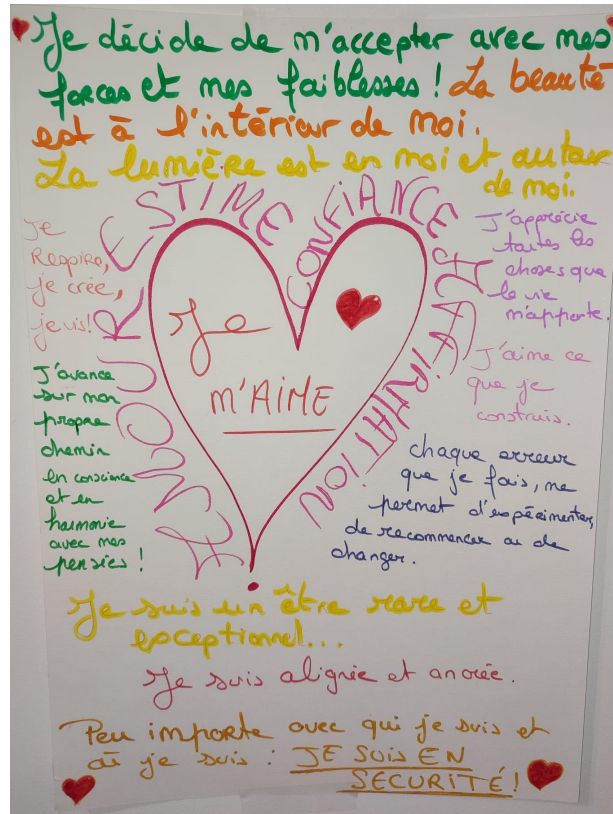 Je décide de m'accepter avec mes
forces et mes faiblesses ! La beauté
est à l'intérieur de moi.
La lumière est en moi et autour
de moi.
AMOUR ESTIME CONFIANCE AFFIRMATION
Je
Respire,
je crée,
je vis!
J'avance
sur mon
propre
chemin
en conscience
et en
harmonie
avec mes
pensées !
Je
M'AIME
J'apprécie
toutes les
choses que
la vie
m'apporte.
J'aime ce
que je
construis.
chaque erreur
que je fais, me
permet d'expérimenter,
de recommencer ou de
changer.
Je suis un être rare et
exceptionnel...
Je suis alignée et ancrée.
Peu importe avec qui je suis et
où je suis : JE SUIS EN
SECURITÉ !